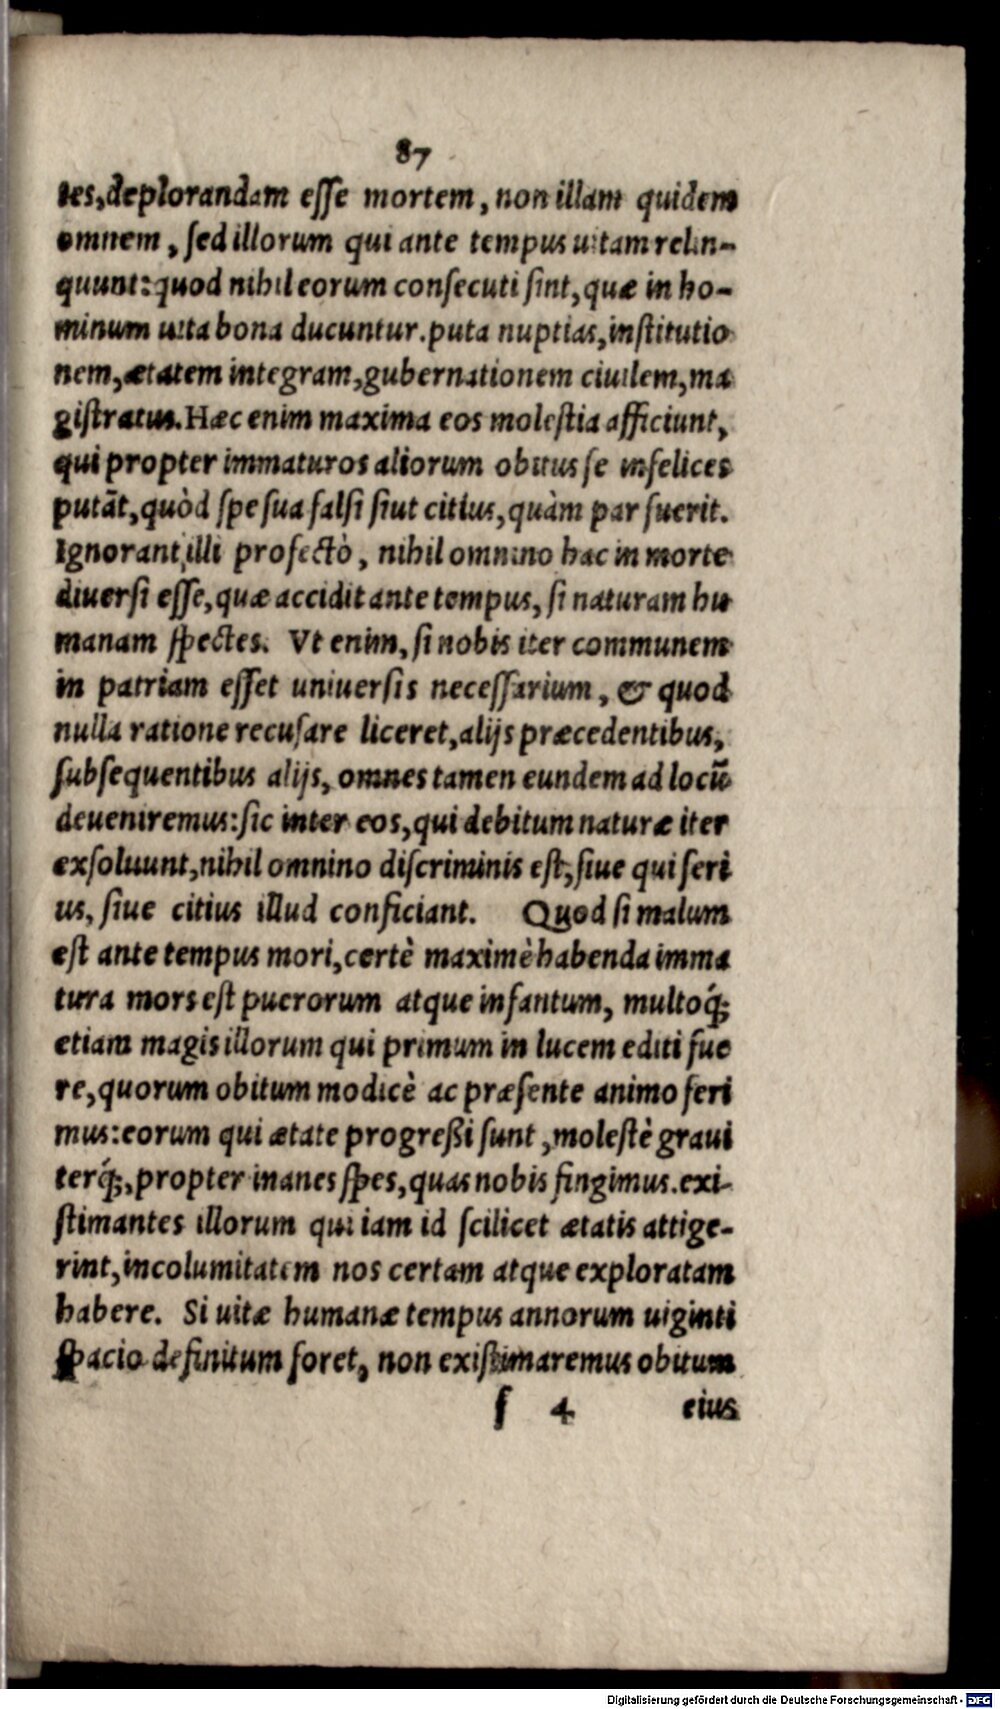 87
tes, deplorandam esse mortem, non illam quidem
omnem, sed illorum qui ante tempus uitam relin-
quunt: quod nihil eorum consecuti sint, quæ in ho-
minum uita bona ducuntur. puta nuptias, institutio
nem, ætatem integram, gubernationem ciuilem, ma
gistratus. Hæc enim maxima eos molestia afficiunt,
qui propter immaturos aliorum obitus se infelices
putãt, quòd spe sua falsi siut citius, quàm par fuerit.
Ignorant illi profectò, nihil omnino hac in morte
diuersi esse, quæ accidit ante tempus, si naturam hu
manam spectes. Vt enim, si nobis iter communem
in patriam esset uniuersis necessarium, & quod
nulla ratione recusare liceret, alijs præcedentibus,
subsequentibus alijs, omnes tamen eundem ad locũ
deueniremus: sic inter eos, qui debitum naturæ iter
exsoluunt, nihil omnino discriminis est, siue qui seri
us, siue citius illud conficiant. Quod si malum
est ante tempus mori, certè maximè habenda imma
tura mors est puerorum atque infantum, multoq́;
etiam magis illorum qui primum in lucem editi fue
re, quorum obitum modicè ac præsente animo feri
mus: eorum qui ætate progreßi sunt, molestè graui
terq́;, propter inanes spes, quas nobis fingimus. exi-
stimantes illorum qui iam id scilicet ætatis attige-
rint, incolumitatem nos certam atque exploratam
habere. Si uitæ humanæ tempus annorum uiginti
spacio definitum foret, non existimaremus obitum
f 4 eius
Digitalisierung gefördert durch die Deutsche Forschungsgemeinschaft - DFG